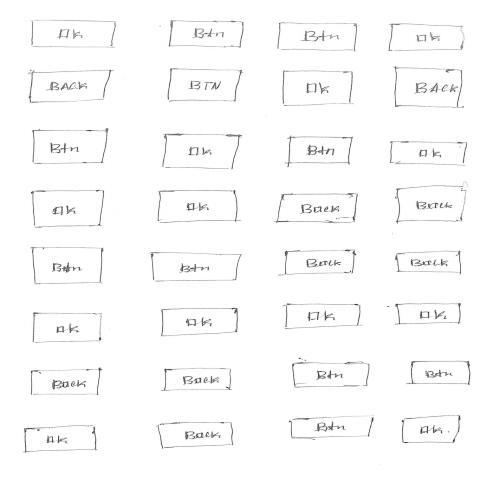 Ok Btn Btn Ok
BACK BTN Ok BACK
Btn Ok Btn Ok
Ok Ok Back Back
Btn Btn Back Back
Ok Ok Ok Ok
Back Back Btn Btn
Ok Back Btn Ok.